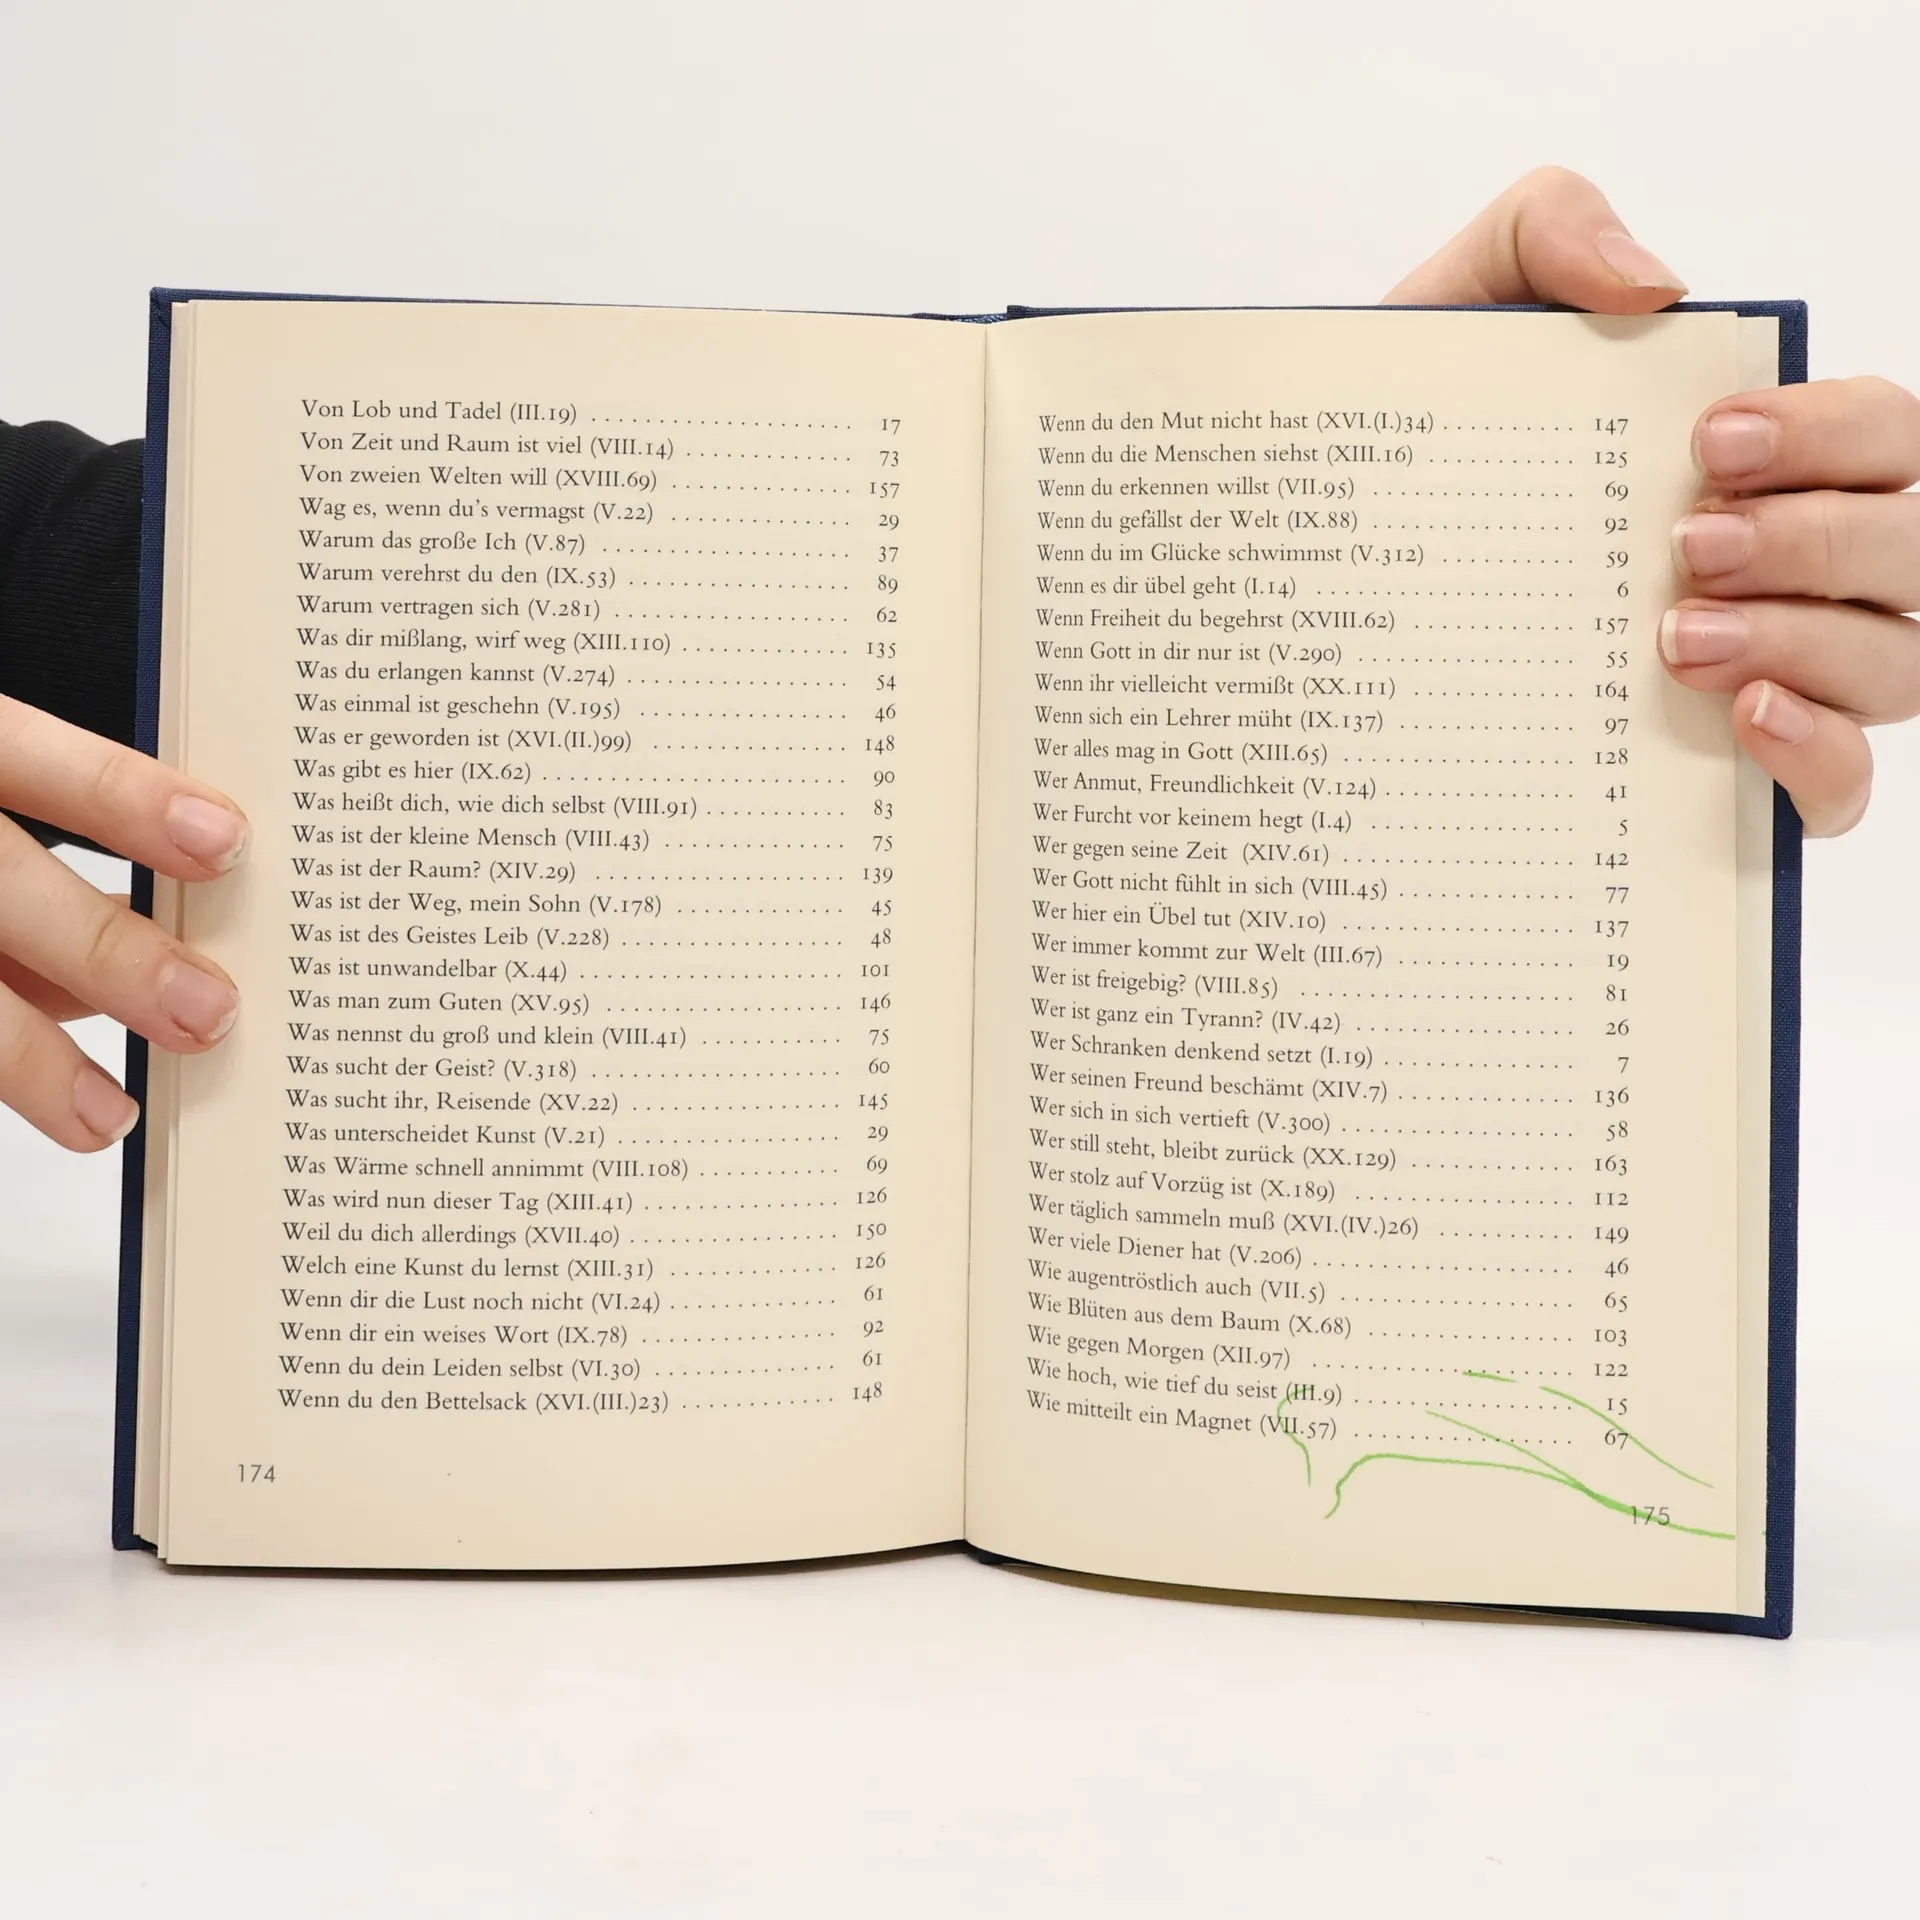 Von Lob und Tadel (III.19) .................... 17
Von Zeit und Raum ist viel (VIII.14) ............. 73
Von zweien Welten will (XVIII.69) .............. 157
Wag es, wenn du's vermagst (V.22) .............. 29
Warum das große Ich (V.87) ................... 37
Warum verehrst du den (IX.53) ................. 89
Warum vertragen sich (V.281) .................. 62
Was dir mißlang, wirf weg (XIII.110) ............. 135
Was du erlangen kannst (V.274) ................. 54
Was einmal ist geschehn (V.195) ................ 46
Was er geworden ist (XVI.(II.)99) ............... 148
Was gibt es hier (IX.62) ....................... 90
Was heißt dich, wie dich selbst (VIII.91) ........... 83
Was ist der kleine Mensch (VIII.43) .............. 75
Was ist der Raum? (XIV.29) ................... 139
Was ist der Weg, mein Sohn (V.178) ............. 45
Was ist des Geistes Leib (V.228) ................. 48
Was ist unwandelbar (X.44) .................... 101
Was man zum Guten (XV.95) .................. 146
Was nennst du groß und klein (VIII.41) ........... 75
Was sucht der Geist? (V.318) ................... 60
Was sucht ihr, Reisende (XV.22) ................ 145
Was unterscheidet Kunst (V.21) ................. 29
Was Wärme schnell annimmt (VIII.108) ........... 69
Was wird nun dieser Tag (XIII.41) ............... 126
Weil du dich allerdings (XVII.40) ................ 150
Welch eine Kunst du lernst (XIII.31) ............. 126
Wenn dir die Lust noch nicht (VI.24) ............. 61
Wenn dir ein weises Wort (IX.78) ............... 92
Wenn du dein Leiden selbst (VI.30) .............. 61
Wenn du den Bettelsack (XVI.(III.)23) ............ 148
174
Wenn du den Mut nicht hast (XVI.(I.)34) .......... 147
Wenn du die Menschen siehst (XIII.16) ........... 125
Wenn du erkennen willst (VII.95) ............... 69
Wenn du gefällst der Welt (IX.88) ............... 92
Wenn du im Glücke schwimmst (V.312) .......... 59
Wenn es dir übel geht (I.14) ................... 6
Wenn Freiheit du begehrst (XVIII.62) ............ 157
Wenn Gott in dir nur ist (V.290) ................ 55
Wenn ihr vielleicht vermißt (XX.111) ............ 164
Wenn sich ein Lehrer müht (IX.137) ............. 97
Wer alles mag in Gott (XIII.65) ................. 128
Wer Anmut, Freundlichkeit (V.124) .............. 41
Wer Furcht vor keinem hegt (I.4) ............... 5
Wer gegen seine Zeit (XIV.61) ................. 142
Wer Gott nicht fühlt in sich (VIII.45) ............. 77
Wer hier ein Übel tut (XIV.10) ................. 137
Wer immer kommt zur Welt (III.67) ............. 19
Wer ist freigebig? (VIII.85) .................... 81
Wer ist ganz ein Tyrann? (IV.42) ................ 26
Wer Schranken denkend setzt (I.19) .............. 7
Wer seinen Freund beschämt (XIV.7) ............. 136
Wer sich in sich vertieft (V.300) ................. 58
Wer still steht, bleibt zurück (XX.129) ............ 163
Wer stolz auf Vorzüg ist (X.189) ................ 112
Wer täglich sammeln muß (XVI.(IV.)26) .......... 149
Wer viele Diener hat (V.206) ................... 46
Wie augentröstlich auch (VII.5) ................. 65
Wie Blüten aus dem Baum (X.68) ............... 103
Wie gegen Morgen (XII.97) ................... 122
Wie hoch, wie tief du seist (III.9) ................ 15
Wie mitteilt ein Magnet (VII.57) ................ 67
175